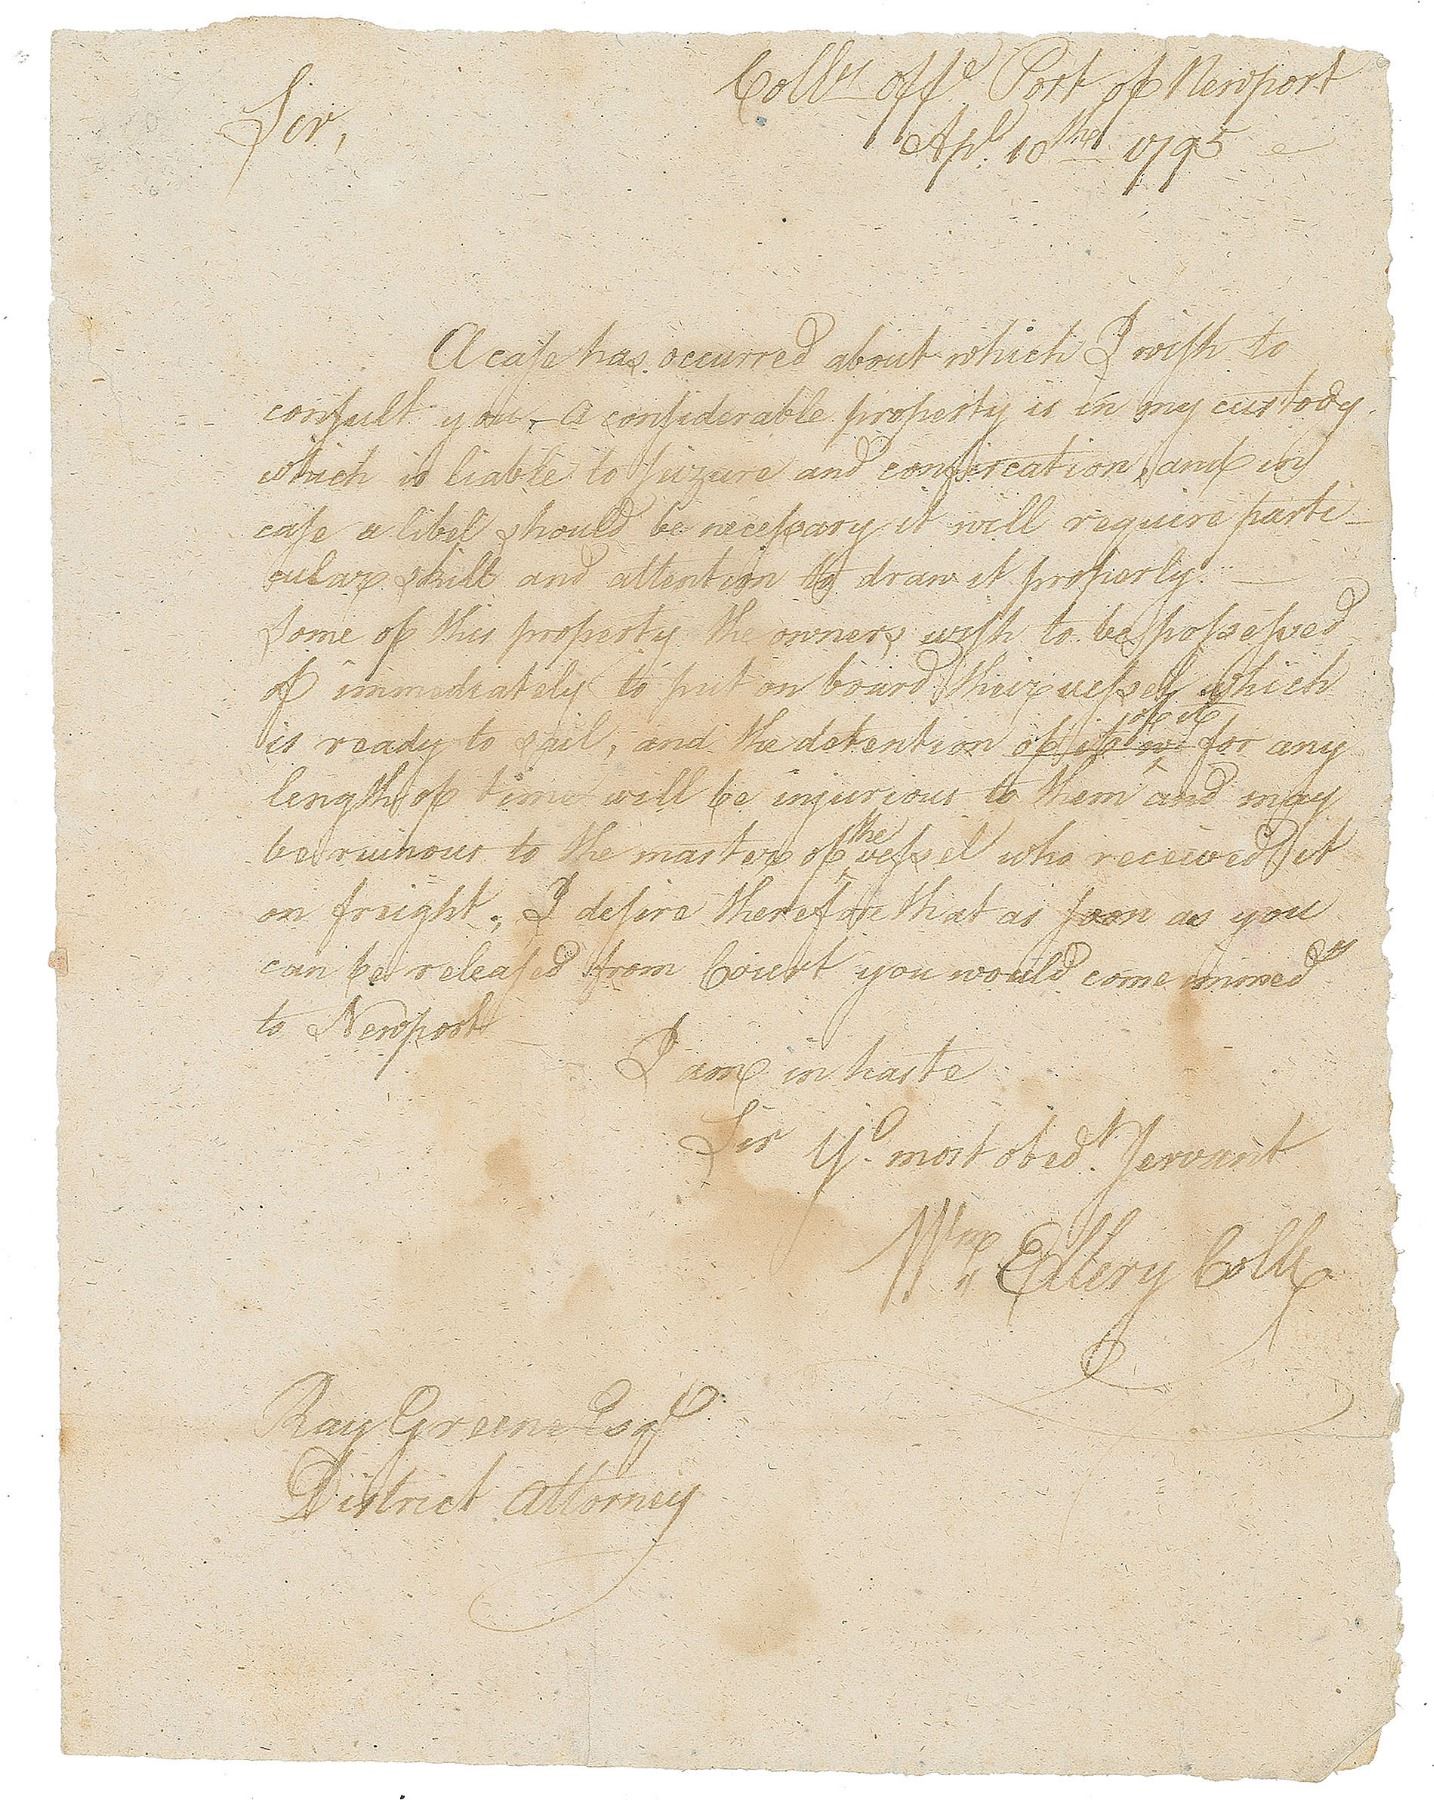 Coll<sup>rs</sup> off<sup>e</sup> Port of Newport
Sir,
Ap<sup>l</sup>. 10<sup>th</sup> 1795
A case has occurred about which I wish to
consult you – A considerable property is in my custody
which is liable to seizure and confiscation, and in
case a libel should be necessary it will require parti-
cular skill and attention to draw it properly. —
Some of this property the owners wish to be possessed
of immediately to put on board their vessel which
is ready to sail, and the detention of it for any
length of time will be injurious to them and may
be ruinous to the master of the vessel who received it
on freight. I desire therefore that as soon as you
can be released from Court you would come immed<sup>y</sup>
to Newport
I am in haste
Sir Y<sup>r</sup>. most obed<sup>t</sup>. Servant
W<sup>m</sup> Ellery Coll<sup>r</sup>
Ray Greene Esq<sup>r</sup>
District Attorney